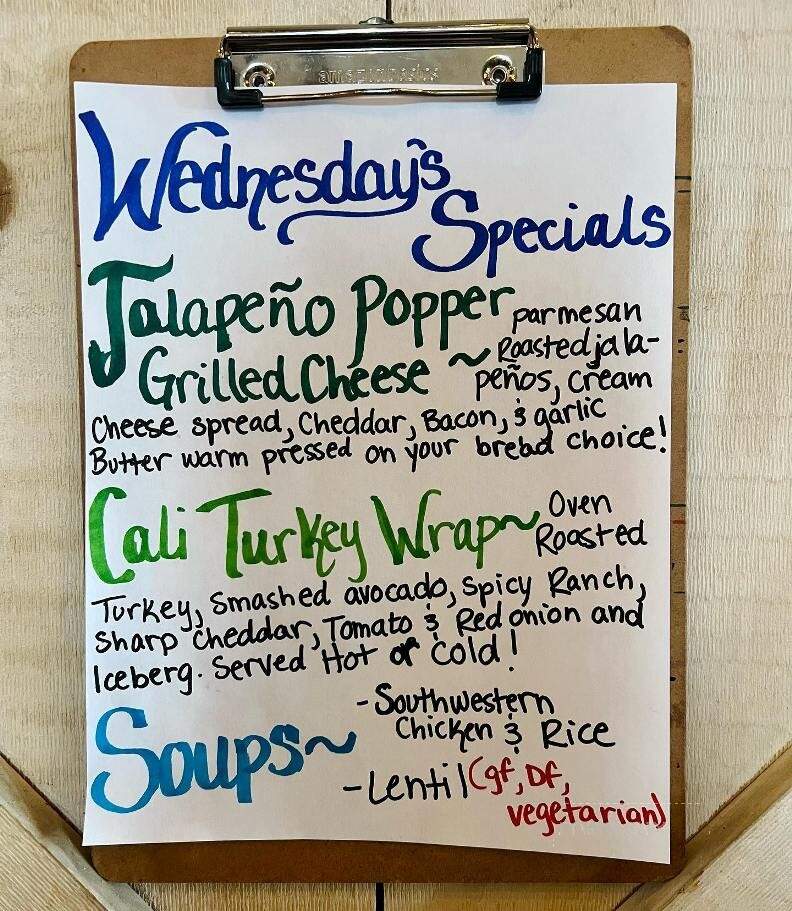 amazonbasics
Wednesday's
Specials
Jalapeño Popper parmesan
Grilled Cheese ~ Roasted jala-
peños, Cream
Cheese spread, Cheddar, Bacon, & garlic
Butter warm pressed on your bread choice!
Cali Turkey Wrap~ Oven
Roasted
Turkey, Smashed avocado, Spicy Ranch,
Sharp Cheddar, Tomato & Red onion and
Iceberg. Served Hot or Cold!
Soups~ -Southwestern
Chicken & Rice
-Lentil (gf, DF,
vegetarian)